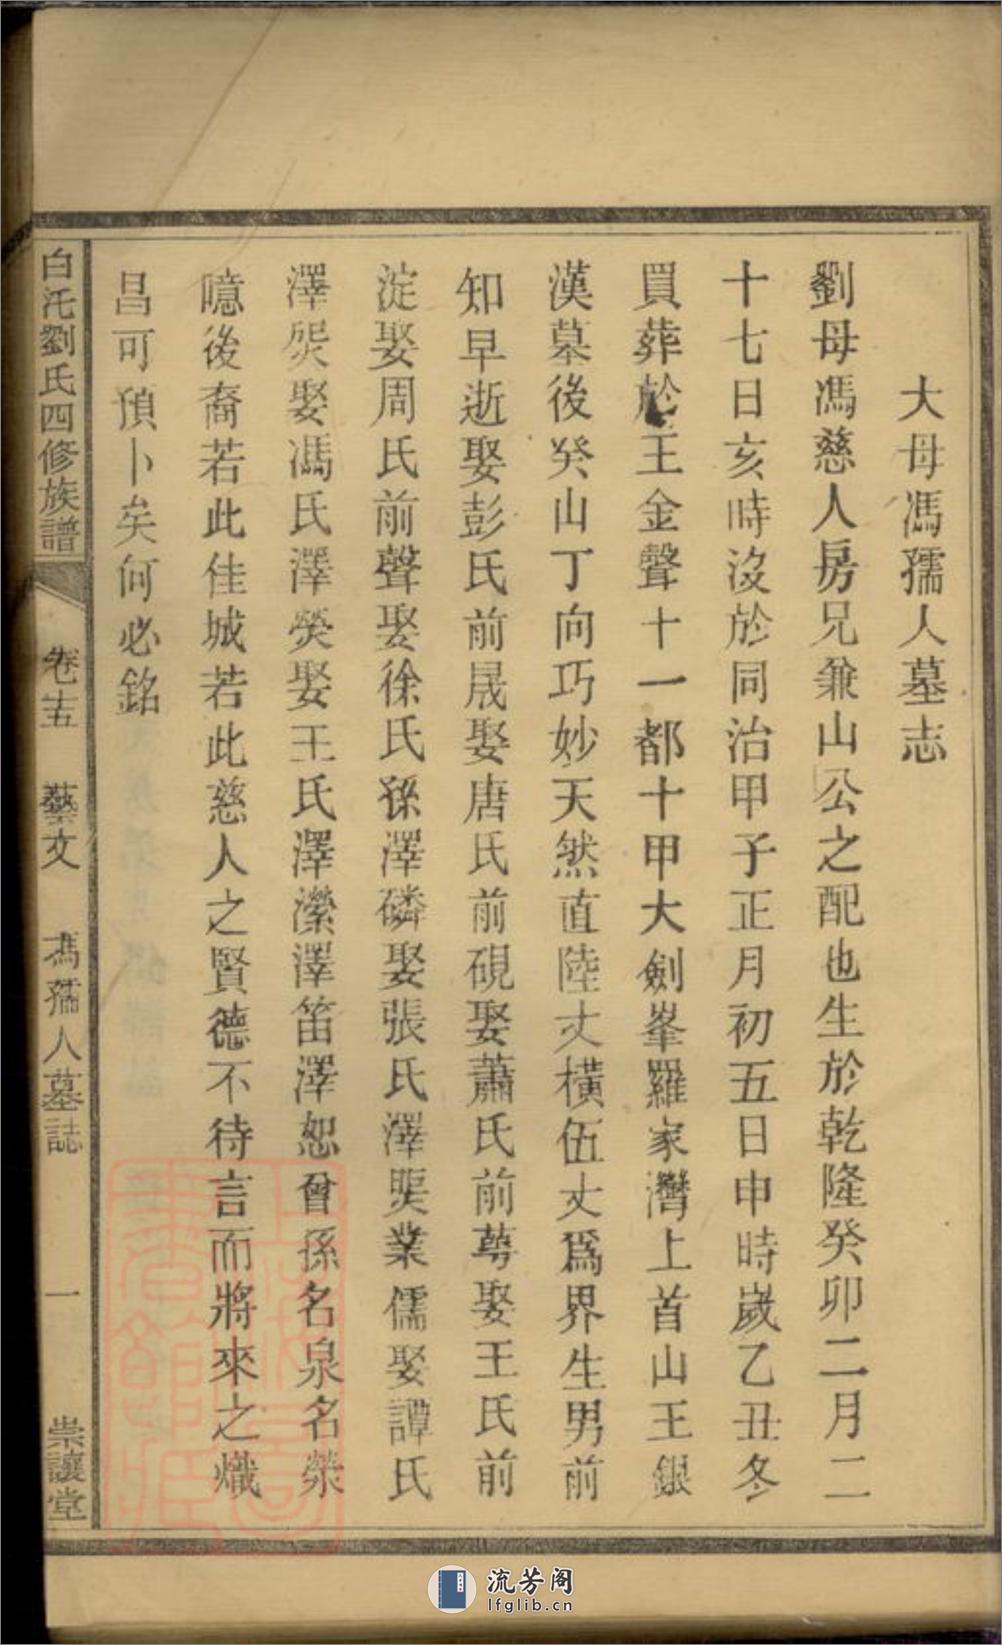 大母馮孺人墓志
劉母馮慈人房兄兼山公之配也生於乾隆癸卯二月二
十七日亥時沒於同治甲子正月初五日申時歲乙丑冬
買葬於王金聲十一都十甲大劍峯羅家灣上首山王銀
漢墓後癸山丁向巧妙天然直陸丈橫伍丈為界生男前
知早逝娶彭氏前晟娶唐氏前硯娶蕭氏前蕚娶王氏前
淀娶周氏前聲娶徐氏孫澤磷娶張氏澤㷼業儒娶譚氏
澤煚娶馮氏澤熒娶王氏澤濴澤笛澤恕曾孫名泉名榮
噫後裔若此佳城若此慈人之賢德不待言而將來之熾
昌可預卜矣何必銘
白沱劉氏四修族譜
卷十五 藝文 馮孺人墓誌 一 崇讓堂
流芳阁
lfglib.cn